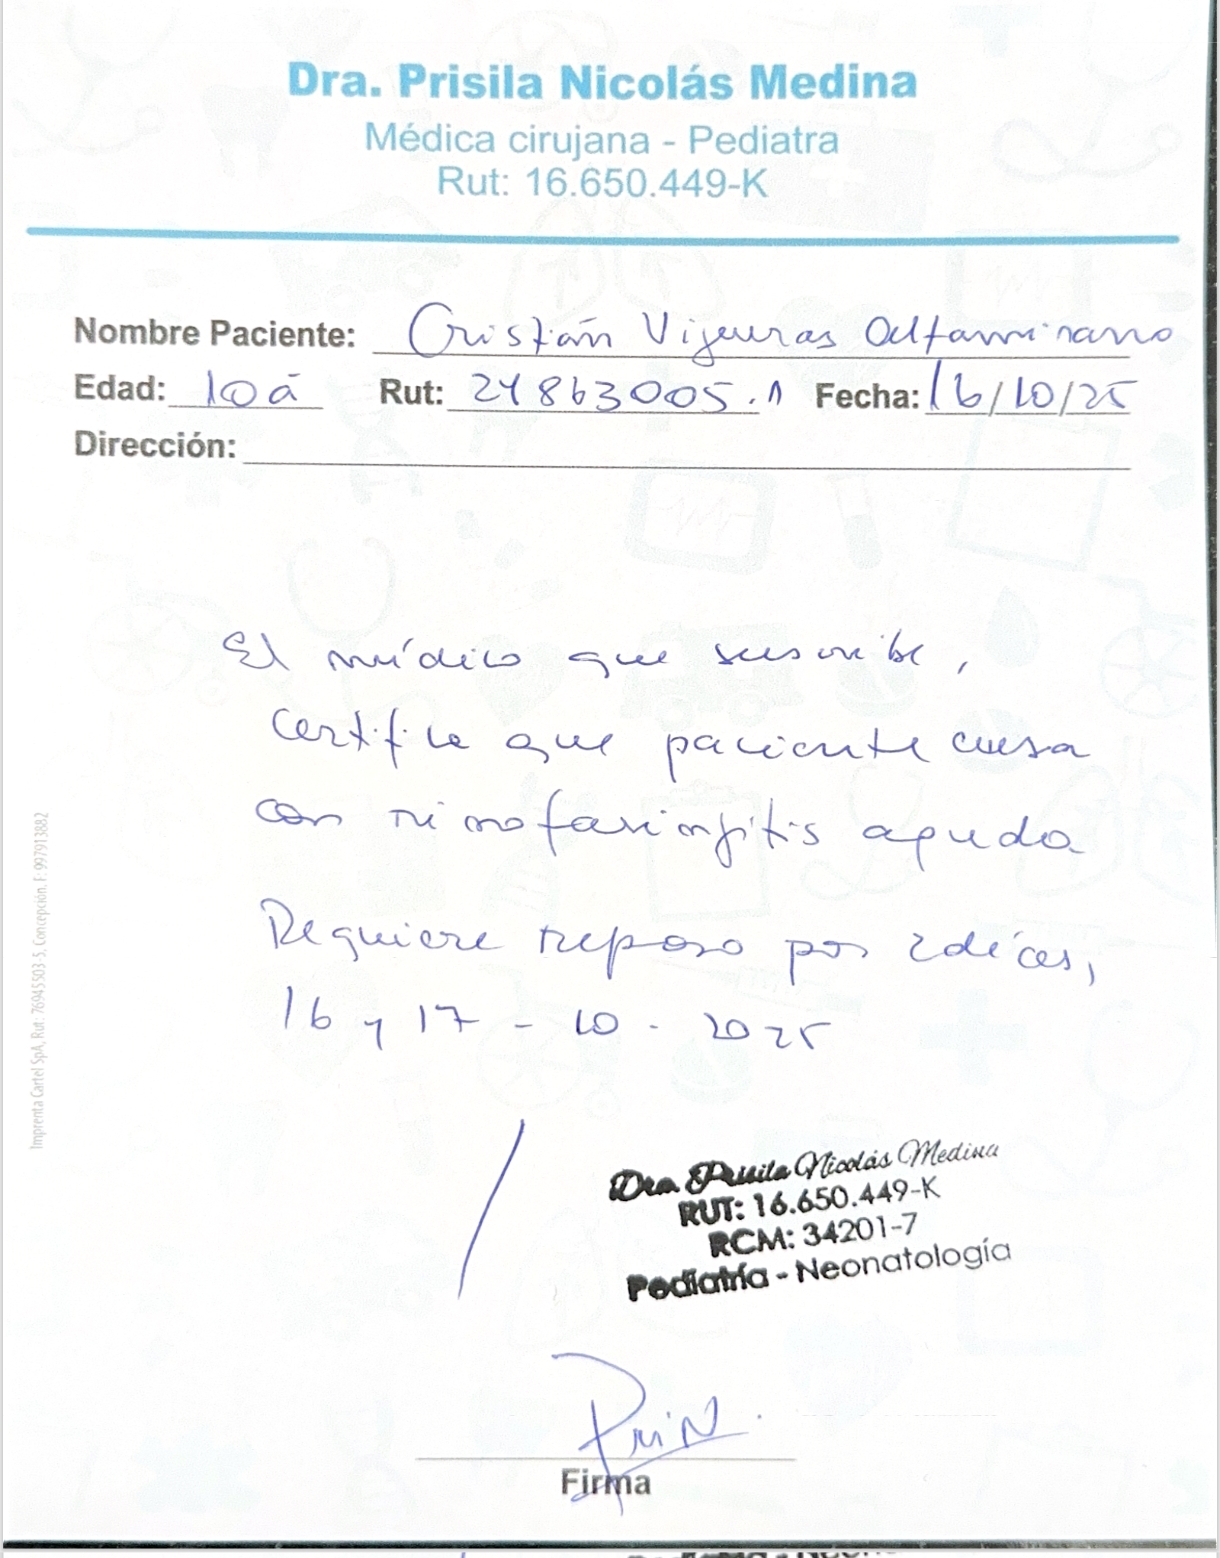 Dra. Prisila Nicolás Medina
Médica cirujana - Pediatra
Rut: 16.650.449-K
Nombre Paciente: Cristián Vigueras Altamirano
Edad: 10 a Rut: 24863005.1 Fecha: 16/10/25
Dirección:
El médico que suscribe,
certifica que paciente cursa
con rinofaringitis aguda
Requiere reposo por 2 días,
16 y 17 - 10 - 2025
Imprenta Cartel SpA, Rut: 76945503-5, Concepción. F: 997913882
Dra. Prisila Nicolás Medina
RUT: 16.650.449-K
RCM: 34201-7
Pediatría - Neonatología
Firma